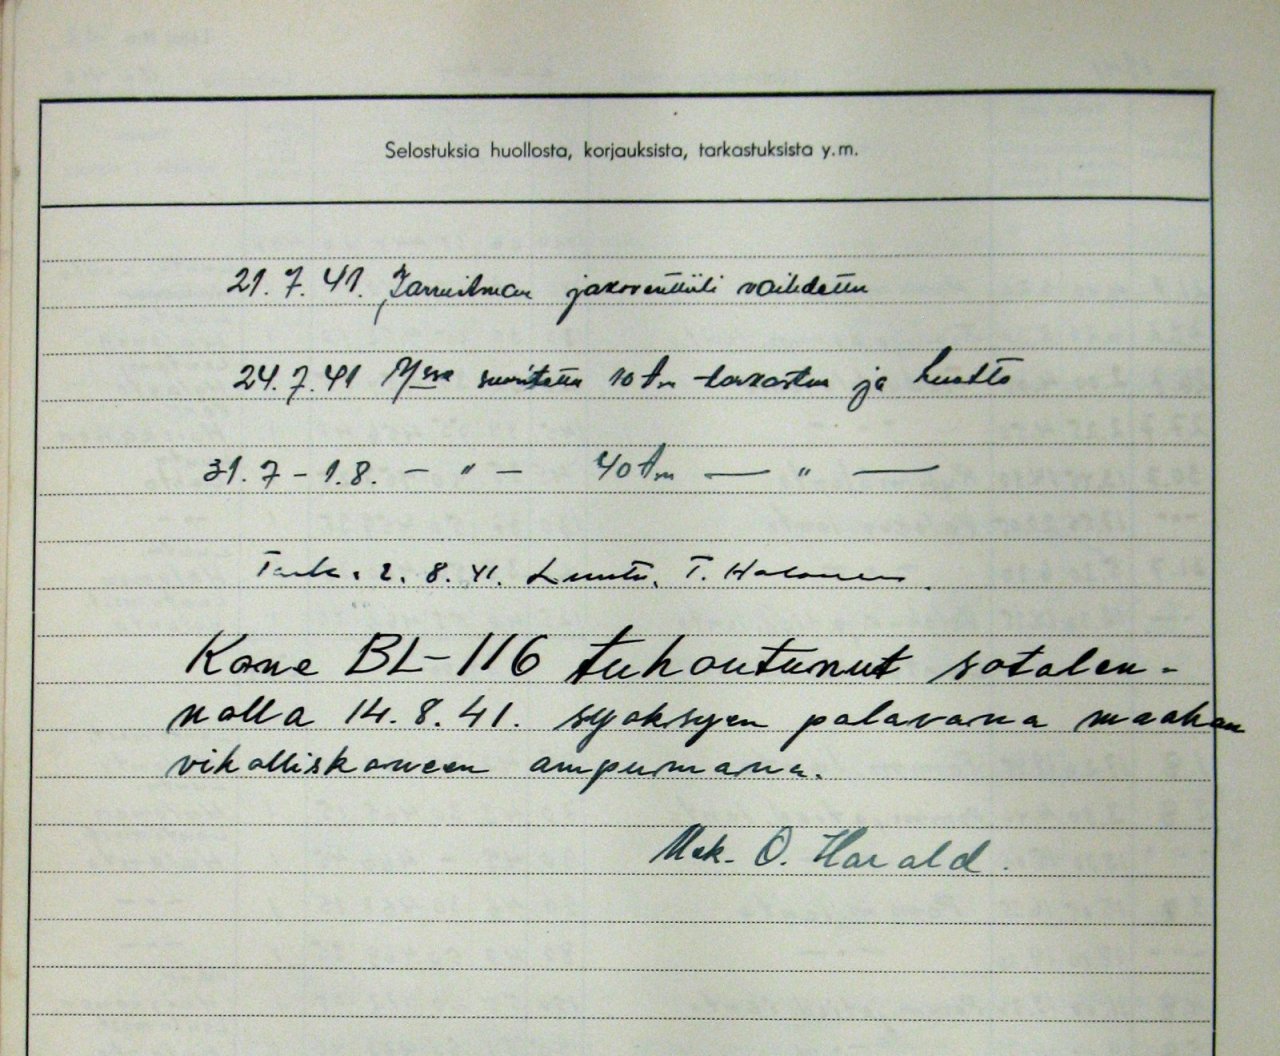 Selostuksia huollosta, korjauksista, tarkastuksista y.m.
21.7.41. Jarruilman jakoventtiili vaihdettu
24.7.41 M/ssa suoritettu 10 t/m tarkastus ja huolto
31.7 – 1.8. — " — 40 t/m — " —
Tark. 2.8.41. Luutn. T. Halonen.
Kone BL-116 tuhoutunut sotalen-
nolla 14.8.41. syöksyen palavana maahan
vihölliskoneen ampumana.
Mek. O. Harald.